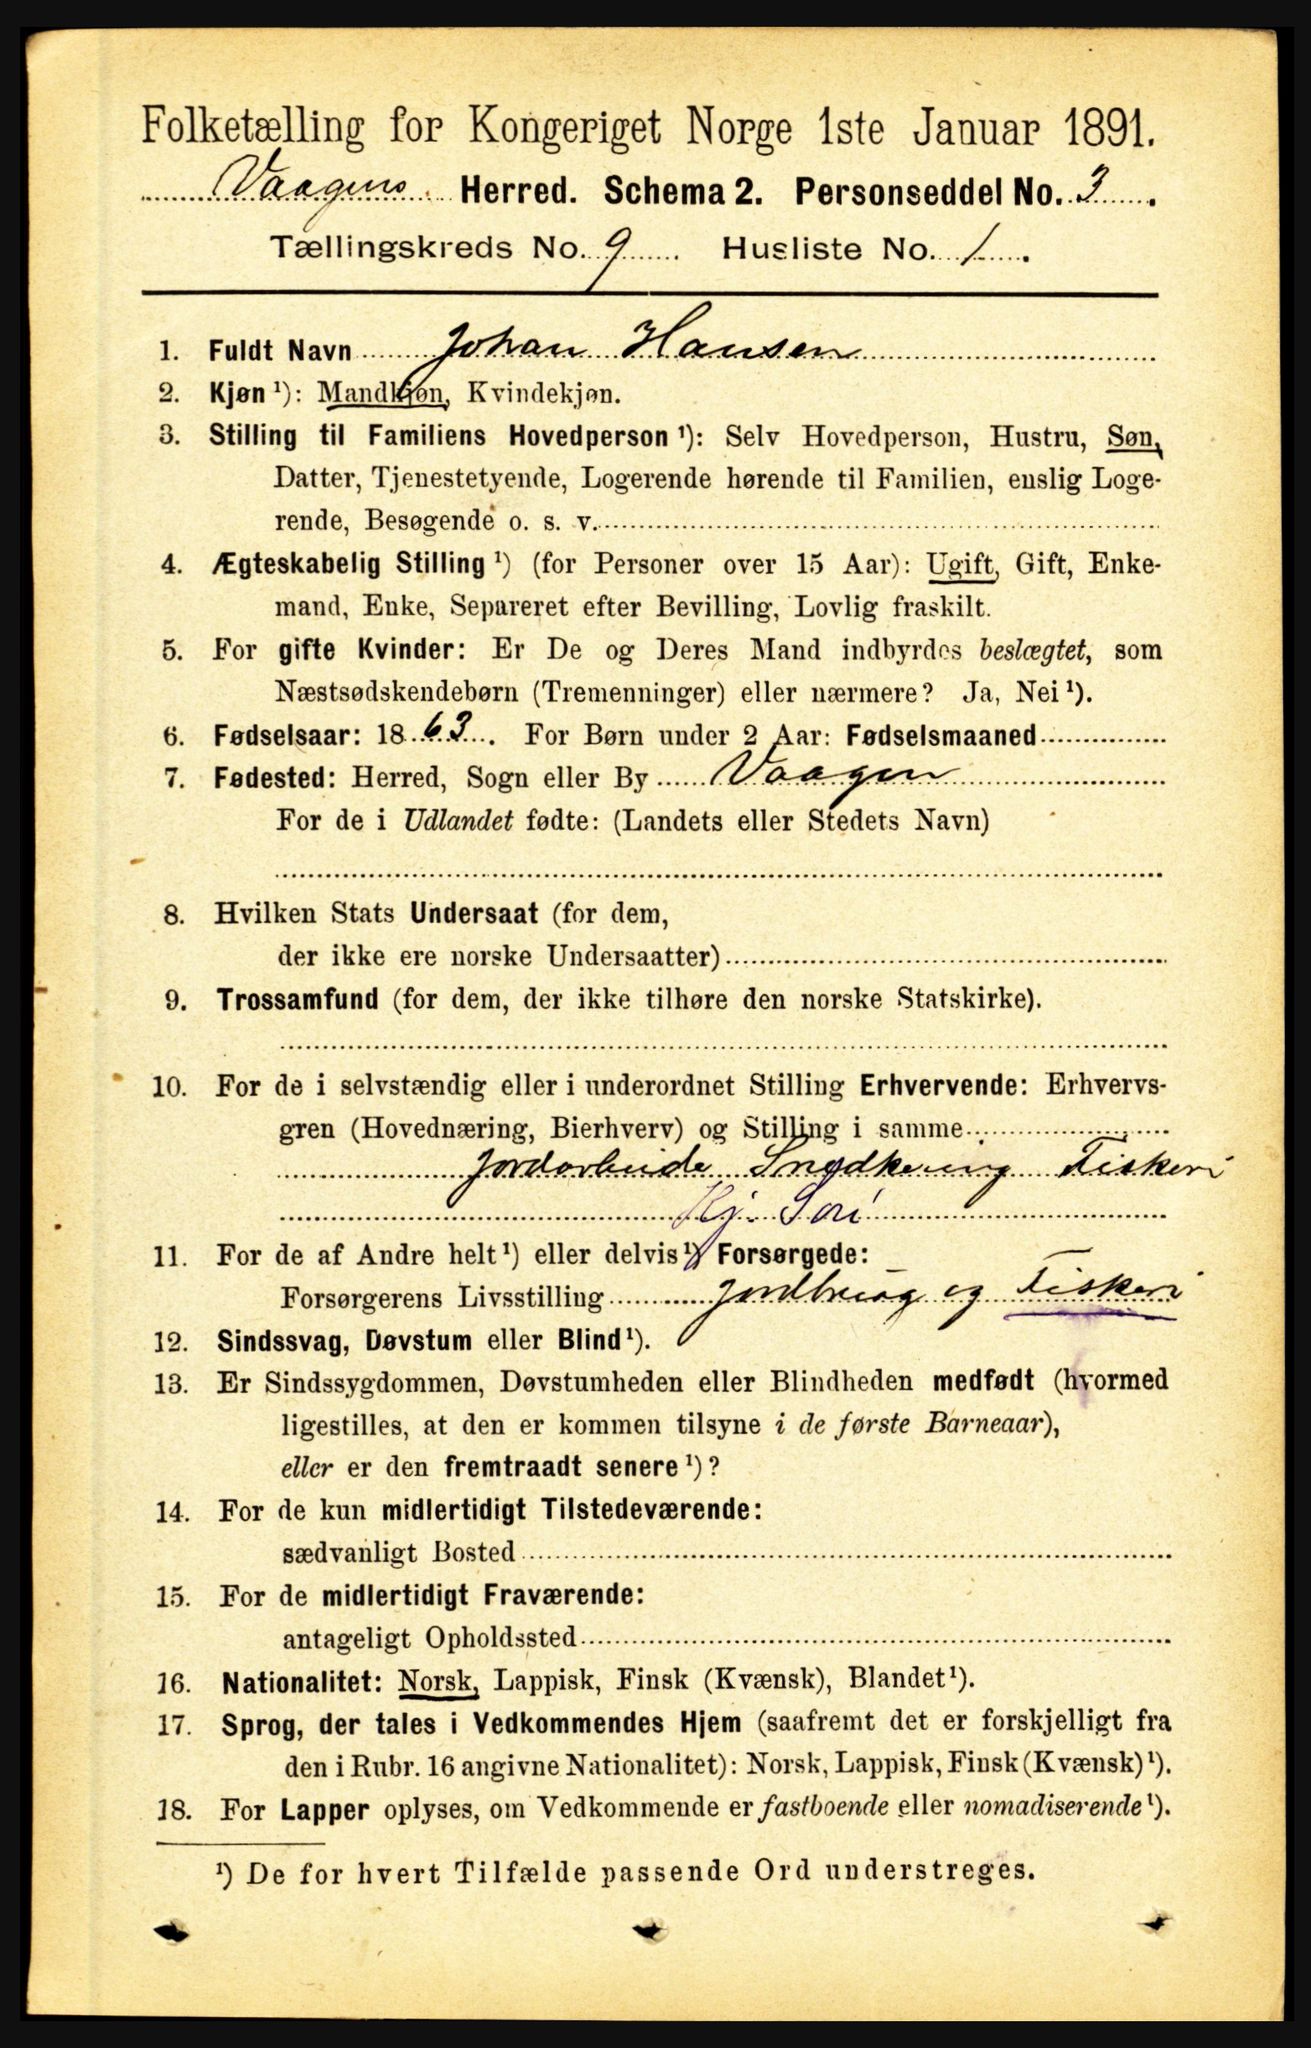 Folketælling for Kongeriget Norge 1ste Januar 1891.
Vaagens Herred. Schema 2. Personseddel No. 3.
Tællingskreds No. 9 Husliste No. 1.
1. Fuldt Navn Johan Hansen
2. Kjøn¹): Mandkjøn, Kvindekjøn.
3. Stilling til Familiens Hovedperson¹): Selv Hovedperson, Hustru, Søn,
Datter, Tjenestetyende, Logerende hørende til Familien, enslig Loge-
rende, Besøgende o. s. v.
4. Ægteskabelig Stilling¹) (for Personer over 15 Aar): Ugift, Gift, Enke-
mand, Enke, Separeret efter Bevilling, Lovlig fraskilt.
5. For gifte Kvinder: Er De og Deres Mand indbyrdes beslægtet, som
Næstsødskendebørn (Tremenninger) eller nærmere? Ja, Nei¹).
6. Fødselsaar: 1863. For Børn under 2 Aar: Fødselsmaaned
7. Fødested: Herred, Sogn eller By Vaagen
For de i Udlandet fødte: (Landets eller Stedets Navn)
8. Hvilken Stats Undersaat (for dem,
der ikke ere norske Undersaatter)
9. Trossamfund (for dem, der ikke tilhøre den norske Statskirke).
10. For de i selvstændig eller i underordnet Stilling Erhvervende: Erhvervs-
gren (Hovednæring, Bierhverv) og Stilling i samme
Jordarbeide Snedkering Fiskeri
Hj. Søn
11. For de af Andre helt¹) eller delvis¹) Forsørgede:
Forsørgerens Livsstilling Jordbrug og Fiskeri
12. Sindssvag, Døvstum eller Blind¹).
13. Er Sindssygdommen, Døvstumheden eller Blindheden medfødt (hvormed
ligestilles, at den er kommen tilsyne i de første Barneaar),
eller er den fremtraadt senere¹)?
14. For de kun midlertidigt Tilstedeværende:
sædvanligt Bosted
15. For de midlertidigt Fraværende:
antageligt Opholdssted
16. Nationalitet: Norsk, Lappisk, Finsk (Kvænsk), Blandet¹).
17. Sprog, der tales i Vedkommendes Hjem (saafremt det er forskjelligt fra
den i Rubr. 16 angivne Nationalitet): Norsk, Lappisk, Finsk (Kvænsk)¹).
18. For Lapper oplyses, om Vedkommende er fastboende eller nomadiserende¹).
¹) De for hvert Tilfælde passende Ord understreges.